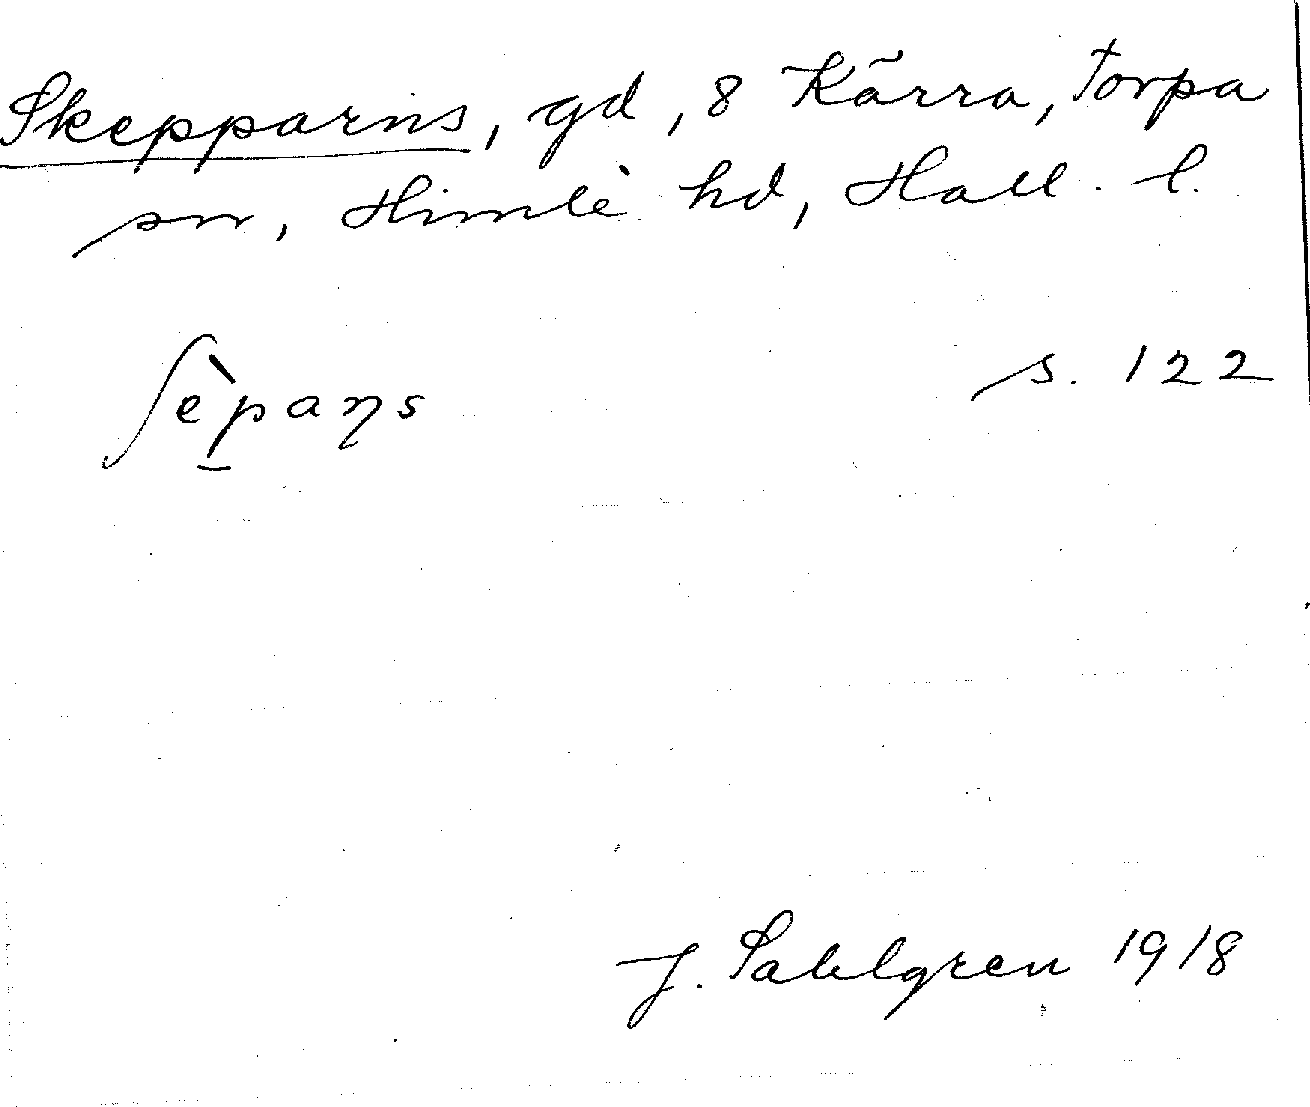 Skepparns, gd, 8 Kärra, Torpa
sn, Himle hd, Hall. l.
ʃèpaɳs s. 122
J. Sahlgren 1918